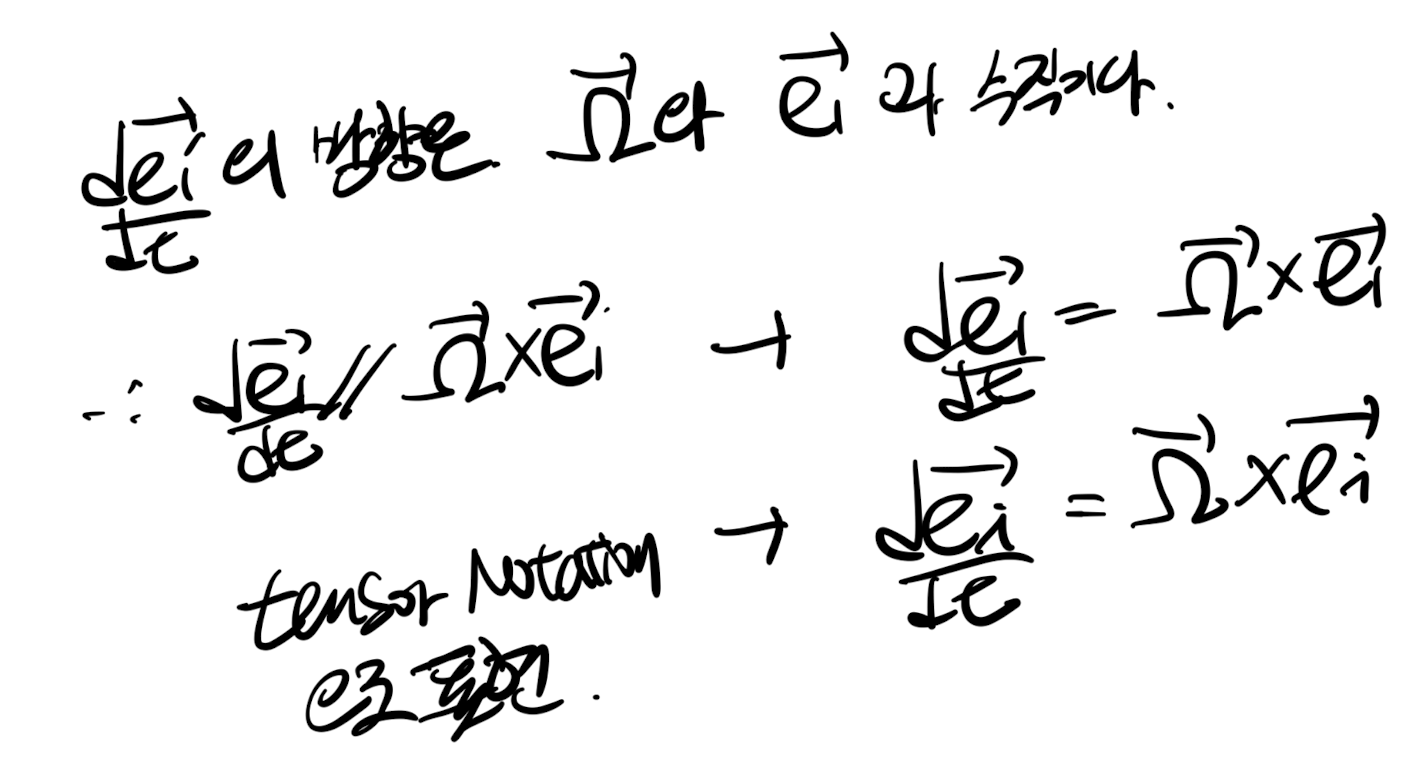 $\frac{d\vec{e_1}}{dt}$의 방향은 $\vec{\Omega}$와 $\vec{e_1}$과 수직이다.
$\therefore \frac{d\vec{e_1}}{dt} // \vec{\Omega} \times \vec{e_1} \rightarrow \frac{d\vec{e_1}}{dt} = \vec{\Omega} \times \vec{e_1}$
tensor Notation $\rightarrow \frac{d\vec{e_i}}{dt} = \vec{\Omega} \times \vec{e_i}$
으로 표현.